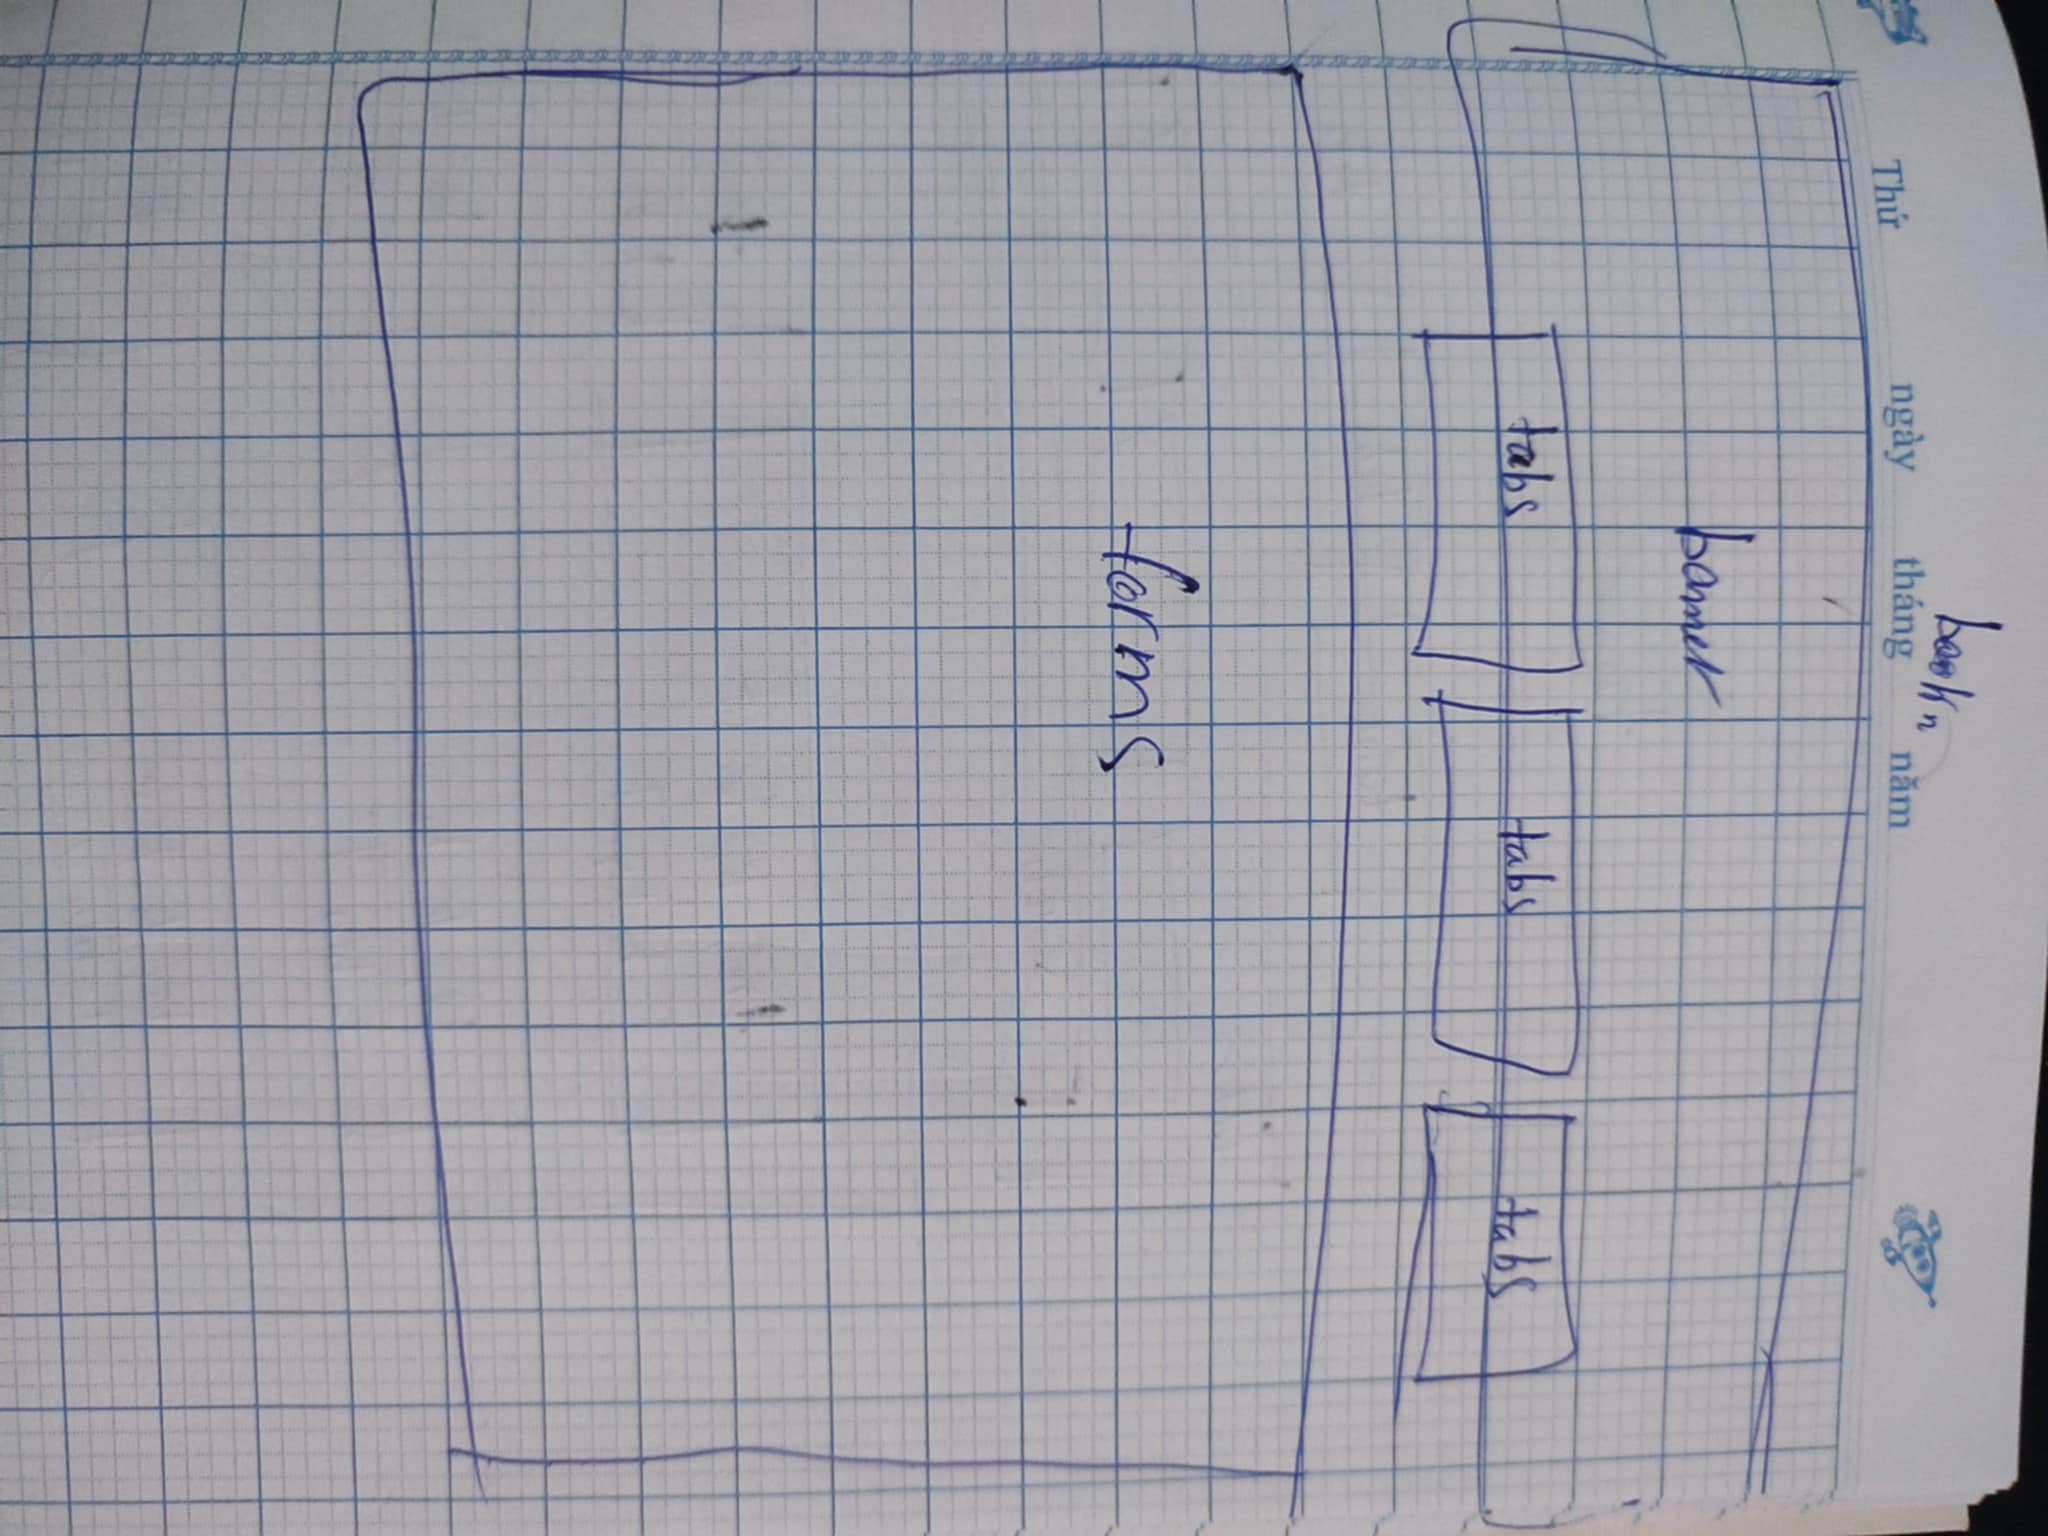 Thứ ngày tháng năm
banner
tabs tabs tabs
forms